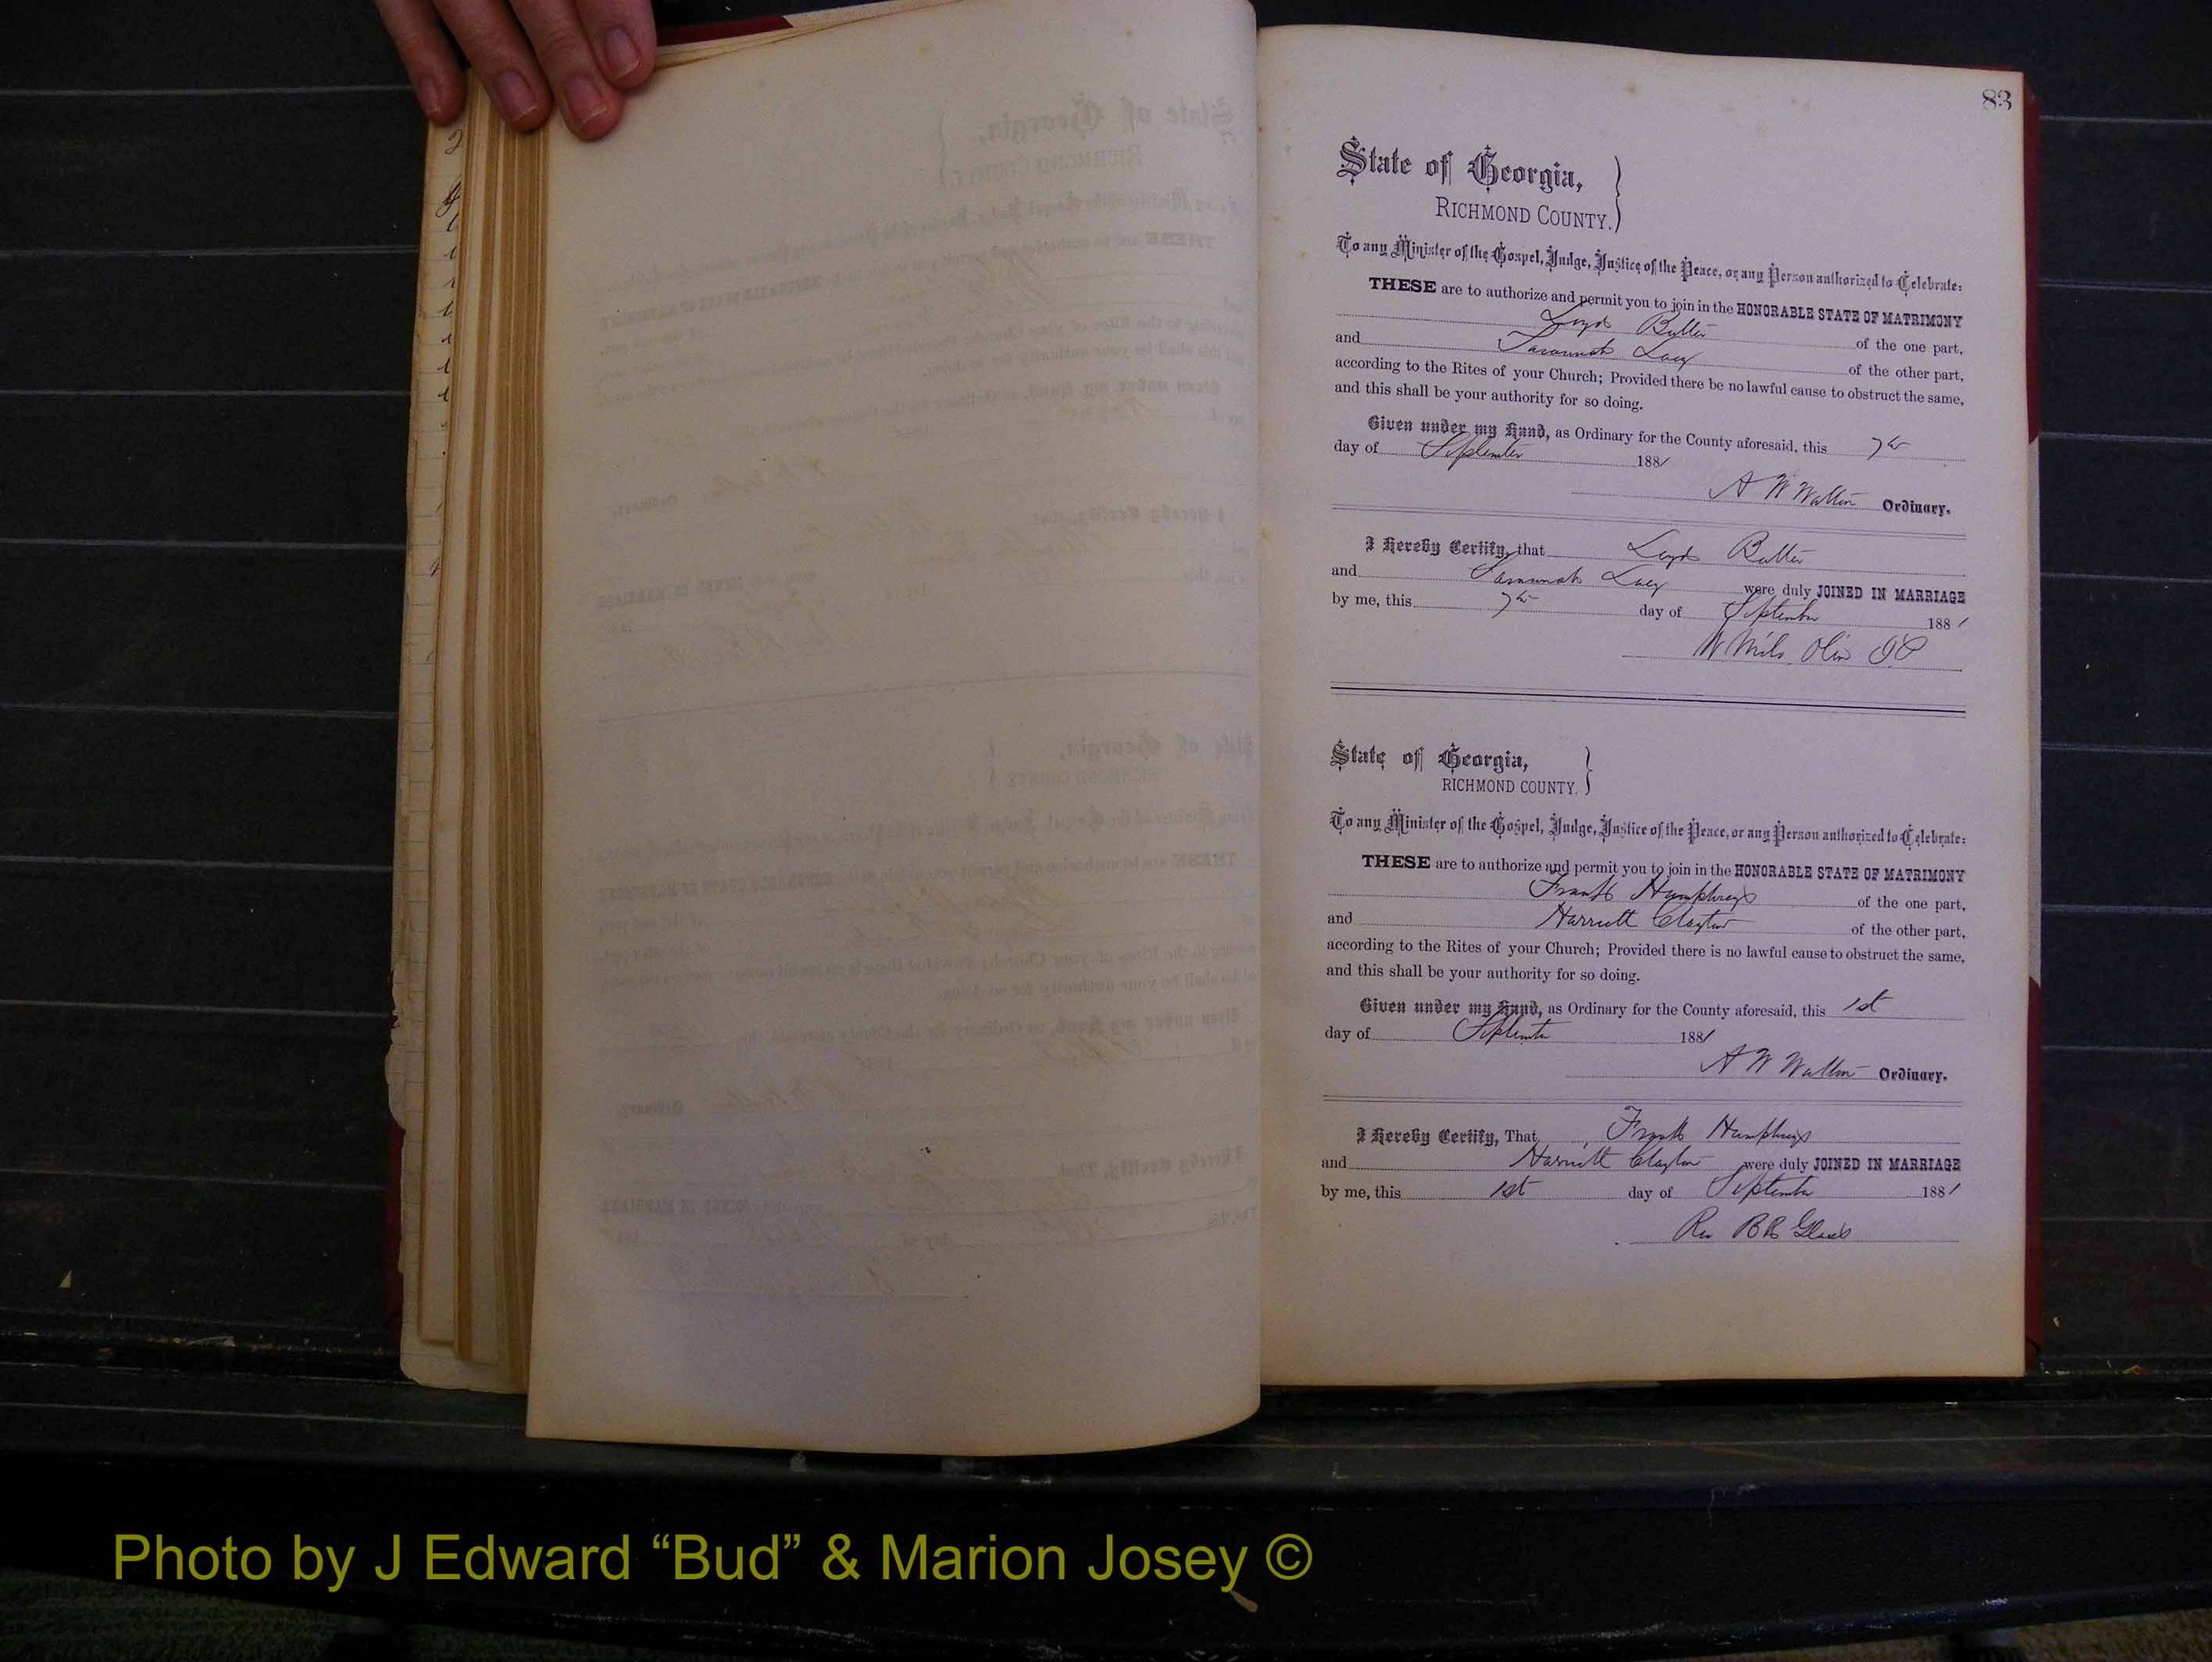 83
State of Georgia,
RICHMOND COUNTY.
To any Minister of the Gospel, Judge, Justice of the Peace, or any Person authorized to Celebrate:
THESE are to authorize and permit you to join in the HONORABLE STATE OF MATRIMONY
Loyd Butler of the one part,
and Savannah Lucy of the other part,
according to the Rites of your Church; Provided there be no lawful cause to obstruct the same,
and this shall be your authority for so doing.
Given under my Hand, as Ordinary for the County aforesaid, this 7th
day of September 1881
A W Walton Ordinary.
I Hereby Certify, that Loyd Butler
and Savannah Lucy were duly JOINED IN MARRIAGE
by me, this 7th day of September 1881
W Mils Olin JP
State of Georgia,
RICHMOND COUNTY.
To any Minister of the Gospel, Judge, Justice of the Peace, or any Person authorized to Celebrate:
THESE are to authorize and permit you to join in the HONORABLE STATE OF MATRIMONY
Frank Humphreys of the one part,
and Harriett Clayton of the other part,
according to the Rites of your Church; Provided there is no lawful cause to obstruct the same,
and this shall be your authority for so doing.
Given under my Hand, as Ordinary for the County aforesaid, this 1st
day of September 1881
A W Walton Ordinary.
I Hereby Certify, That Frank Humphreys
and Harriett Clayton were duly JOINED IN MARRIAGE
by me, this 1st day of September 1881
Rev
Photo by J Edward “Bud” & Marion Josey ©